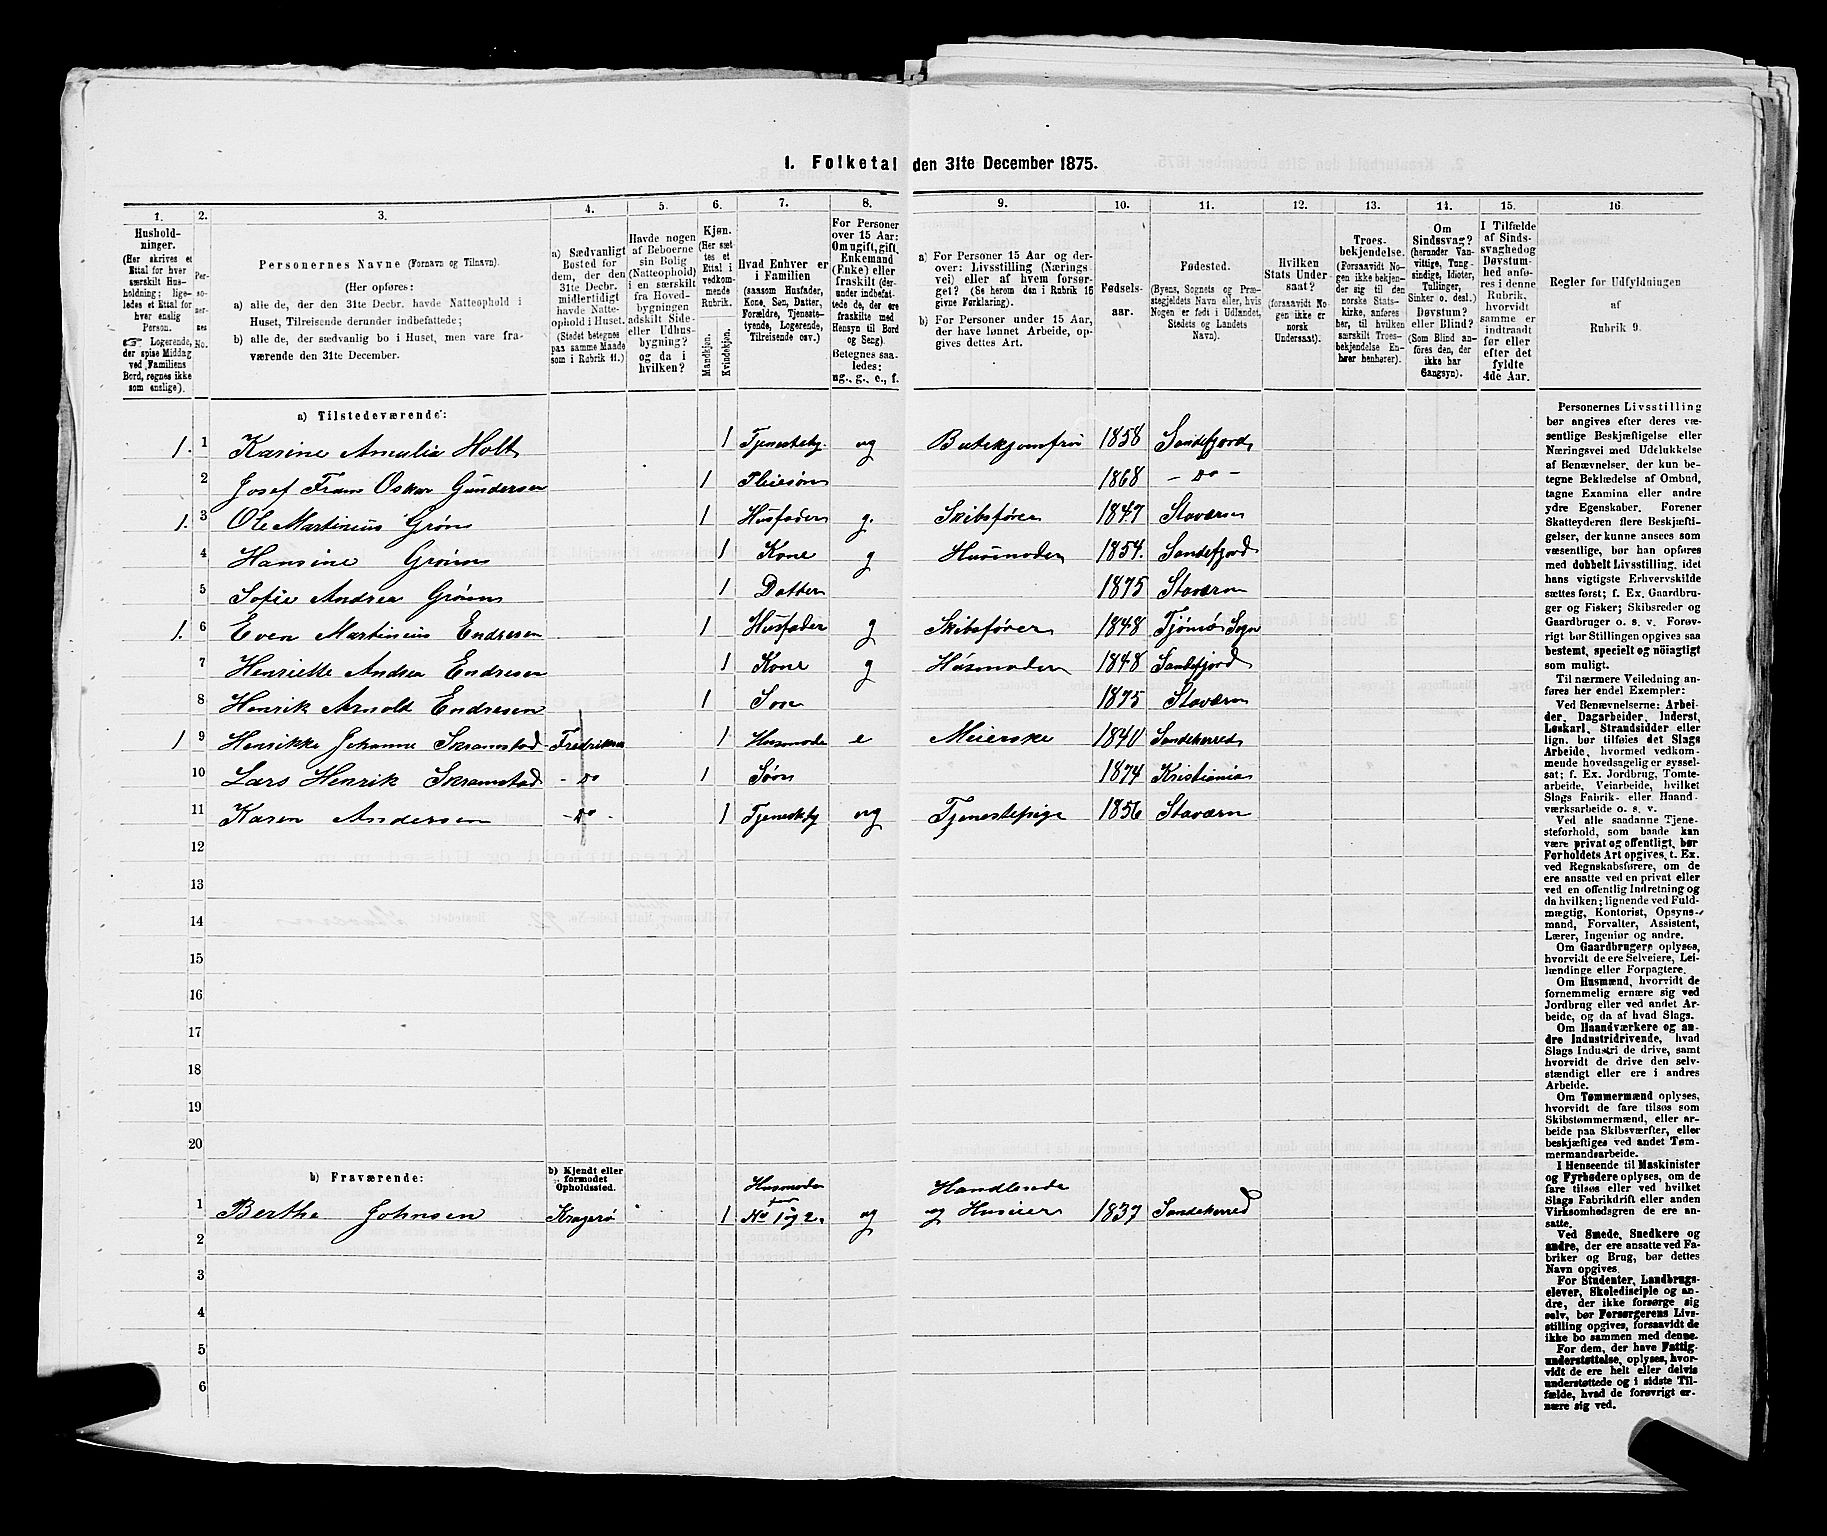 1. Folketal den 31te December 1875.
1. 2. 3. 4. 5. 6. 7. 8. 9. 10. 11. 12. 13. 14. 15. 16
Husholdninger.
(Her skrives et
Ettal for hver
særskilt Husholdning;
ligeledes et Ettal for
hver enslig
Person.
☞ Logerende,
der spise Middag
ved Familiens
Bord, regnes ikke
som enslige).
Personernes
No.
Personernes Navne (Fornavn og Tilnavn).
(Her opføres:
a) alle de, der den 31te Decbr. havde Natteophold i
Huset, Tilreisende derunder indbefattede;
b) alle de, der sædvanlig bo i Huset, men vare fraværende
den 31te December.
a) Sædvanligt
Bosted for
dem, der den
31te Decbr.
midlertidigt
havde Natteophold
i Huset.
(Stedet betegnes
paa samme Maade
som i Rubrik 11.)
Havde nogen
af Beboerne
sin Bolig
(Natteophold)
i en særskilt
fra Hovedbygningen
adskilt Side-
eller Udhusbygning?
og da i
hvilken?
Kjøn.
(Her sættes
et
Ettal i
vedkommende
Rubrik.
Mandkjøn.
Kvindekjøn.
Hvad Enhver er
i Familien
(saasom Husfader,
Kone, Søn, Datter,
Forældre, Tjenestetyende,
Logerende,
Tilreisende osv.)
For Personer
over 15 Aar:
Om ugift, gift,
Enkemand
(Enke) eller
fraskilt (derunder
indbefattede
de, der ere
fraskilte med
Hensyn til Bord
og Seng).
Betegnes saaledes:
ug., g., e., f.
a) For Personer 15 Aar og derover:
Livsstilling (Næringsvei)
eller af hvem forsørget?
(Se herom den i Rubrik 16
givne Forklaring).
b) For Personer under 15 Aar,
der have lønnet Arbeide, opgives
dettes Art.
Fødselsaar.
Fødested.
(Byens, Sognets og Præstegjeldets
Navn eller, hvis
Nogen er født i Udlandet,
Stedets og Landets
Navn).
Hvilken
Stats Undersaat?
(forsaavidt Nogen
ikke er
norsk
Undersaat).
Troesbekjendelse.
(Forsaavidt Nogen
ikke bekjender
sig til den
norske Statskirke,
anføres
her, til hvilken
særskilt Troesbekjendelse
Enhver
henhører).
Om
Sindssvag?
(herunder Vanvittige,
Tungsindige,
Idioter,
Tullinger,
Sinker o. desl.)
Døvstum?
eller Blind?
(Som Blind anføres
den, der
ikke har
Gangsyn).
I Tilfælde
af Sindssvaghed
og
Døvstumhed
anføres
i denne
Rubrik,
hvorvidt
samme er
indtraadt
før eller
efter det
fyldte
4de Aar.
Regler for Udfyldningen
af
Rubrik 9.
a) Tilstedeværende:
1. 1 Karine Amalia Holt 1 Tjenestety. ug Butikjomfru 1858 Sandefjord
2 Josef Frans Oskar Gundersen 1 Pleiesøn 1868 - do -
1. 3 Ole Martinius Grøn 1 Husfader g. Skibsfører 1847 Staværn
4 Hansine Grøn 1 Kone g Husmoder 1854. Sandefjord
5 Sofie Andrea Grøn 1 Datter 1875 Staværn
1. 6 Even Martinius Endresen 1 Husfader g Skibsfører 1848 Tjømø Sogn
7 Henriette Andrea Endresen 1 Kone g Husmoder 1848 Sandefjord
8 Henrik Arnold Endresen 1 Søn 1875 Staværn
1 9 Henrikke Johanne Skramstad 1 Husmoder e Meierske 1840 Sandeherred
10 Lars Henrik Skramstad - do 1 Søn 1874 Kristiania
11 Karen Andersen - do - 1 Tjenestety ug Tjenestepige 1856 Staværn
12
13
14
15
16
17
18
19
20
b) Fraværende:
b) Kjendt eller
formodet
Opholdssted.
Husmoder for Handlende
1 Berthe Johnsen Kragerø 1 No 1 og 2. ug og Huseier 1837 Sandeherred
2
3
4
5
6
Personernes Livsstilling
bør angives efter deres væsentlige
Beskjæftigelse eller
Næringsvei med Udelukkelse
af Benævnelser, der kun betegne
Beklædelse af Ombud,
tagne Examina eller andre
ydre Egenskaber. Forener
Skatteyderen flere Beskjæftigelser,
der kunne ansees som
væsentlige, bør han opføres
med dobbelt Livsstilling, idet
hans vigtigste Erhvervskilde
sættes først; f. Ex. Gaardbruger
og Fisker; Skibsreder og
Gaardbruger o. s. v. Forøvrigt
bør Stillingen opgives saa
bestemt, specielt og nöiagtigt
som muligt.
Til nærmere Veiledning anføres
her endel Exempler:
Ved Benævnelserne: Arbeider,
Dagarbeider, Inderst,
Løskarl, Strandsidder eller
lign. bør tilføies det Slags
Arbeide, hvormed vedkommende
hovedsagelig er sysselsat;
f. Ex. Jordbrug, Tomtearbeide,
Veiarbeide, hvilket
Slags Fabrik- eller Haandværksarbeide
o. s. v.
Ved alle saadanne Tjenesteforhold,
som baade kan
være privat og offentligt, bør
Forholdets Art opgives, t. Ex.
ved Regnskabsførere, om de
ere ansatte ved en privat eller
ved en offentlig Indretning og
da hvilken; lignende ved Fuldmægtig,
Kontorist, Opsynsmand,
Forvalter, Assistent,
Lærer, Ingeniør og andre.
Om Gaardbrugere oplyses,
hvorvidt de ere Selveiere, Leilændinge
eller Forpagtere.
Om Husmænd, hvorvidt de
fornemmelig ernære sig ved
Jordbrug eller ved andet Arbeide,
og da af hvad Slags.
Om Haandværkere og andre
Industridrivende, hvad
Slags Industri de drive, samt
hvorvidt de drive den selvstændigt
eller ere i andres
Arbeide.
Om Tømmermænd oplyses,
hvorvidt de fare tilsøs som
Skibstømmermænd, eller arbeide
paa Skibsværfter, eller
beskjæftiges ved andet Tømmermandsarbeide.
I Henseende til Maskinister
og Fyrbødere oplyses, om de
fare tilsøs eller ved hvilket
Slags Fabrikdrift eller anden
Virksomhedsgren de ere ansatte.
Ved Smede, Snedkere og
andre, der ere ansatte ved Fabriker
og Brug, bør dettes
Navn opgives.
For Studenter, Landbrugselever,
Skoledisciple og andre,
der ikke forsørge sig
selv, bør Forsørgerens Livsstilling
opgives, forsaavidt de
ikke bo sammen med denne.
For dem, der have Fattigunderstøttelse,
oplyses, hvorvidt
de ere helt eller delvis
understøttede og i sidste Tilfælde,
hvad de forøvrigt ernære
sig ved.